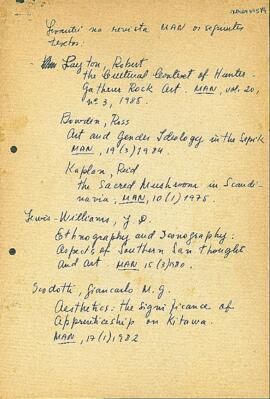 na revista MAN os seguintes
textos:
- Layton, Robert
the Cultural Context of Hunter-
Gatherer Rock Art. MAN, vol. 20,
nº 3, 1985.
Bowden, Ross
Art and Gender Ideology in the Sepik
MAN, 19(3) 1984
Kaplan, Reid
the Sacred Mushroom in Scandi-
navia. MAN, 10(1) 1975.
Lewis-Williams, J. D.
Ethnography and Iconography:
Aspects of Southern San thought
and Art. MAN 15(3) 1980.
Scoditti, Giancarlo M. G.
Aesthetics: the significance of
Apprenticeship on Kitawa.
MAN, 17(1) 1982